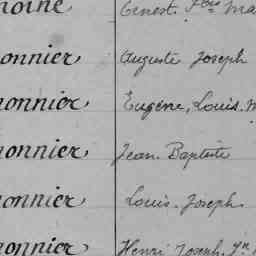 moine Ernest. Fois Ma
onnier Auguste Joseph
monnier Eugène, Louis. M
monnier Jean. Baptiste
onnier Louis. Joseph.
monnier Henri Joseph. Jn